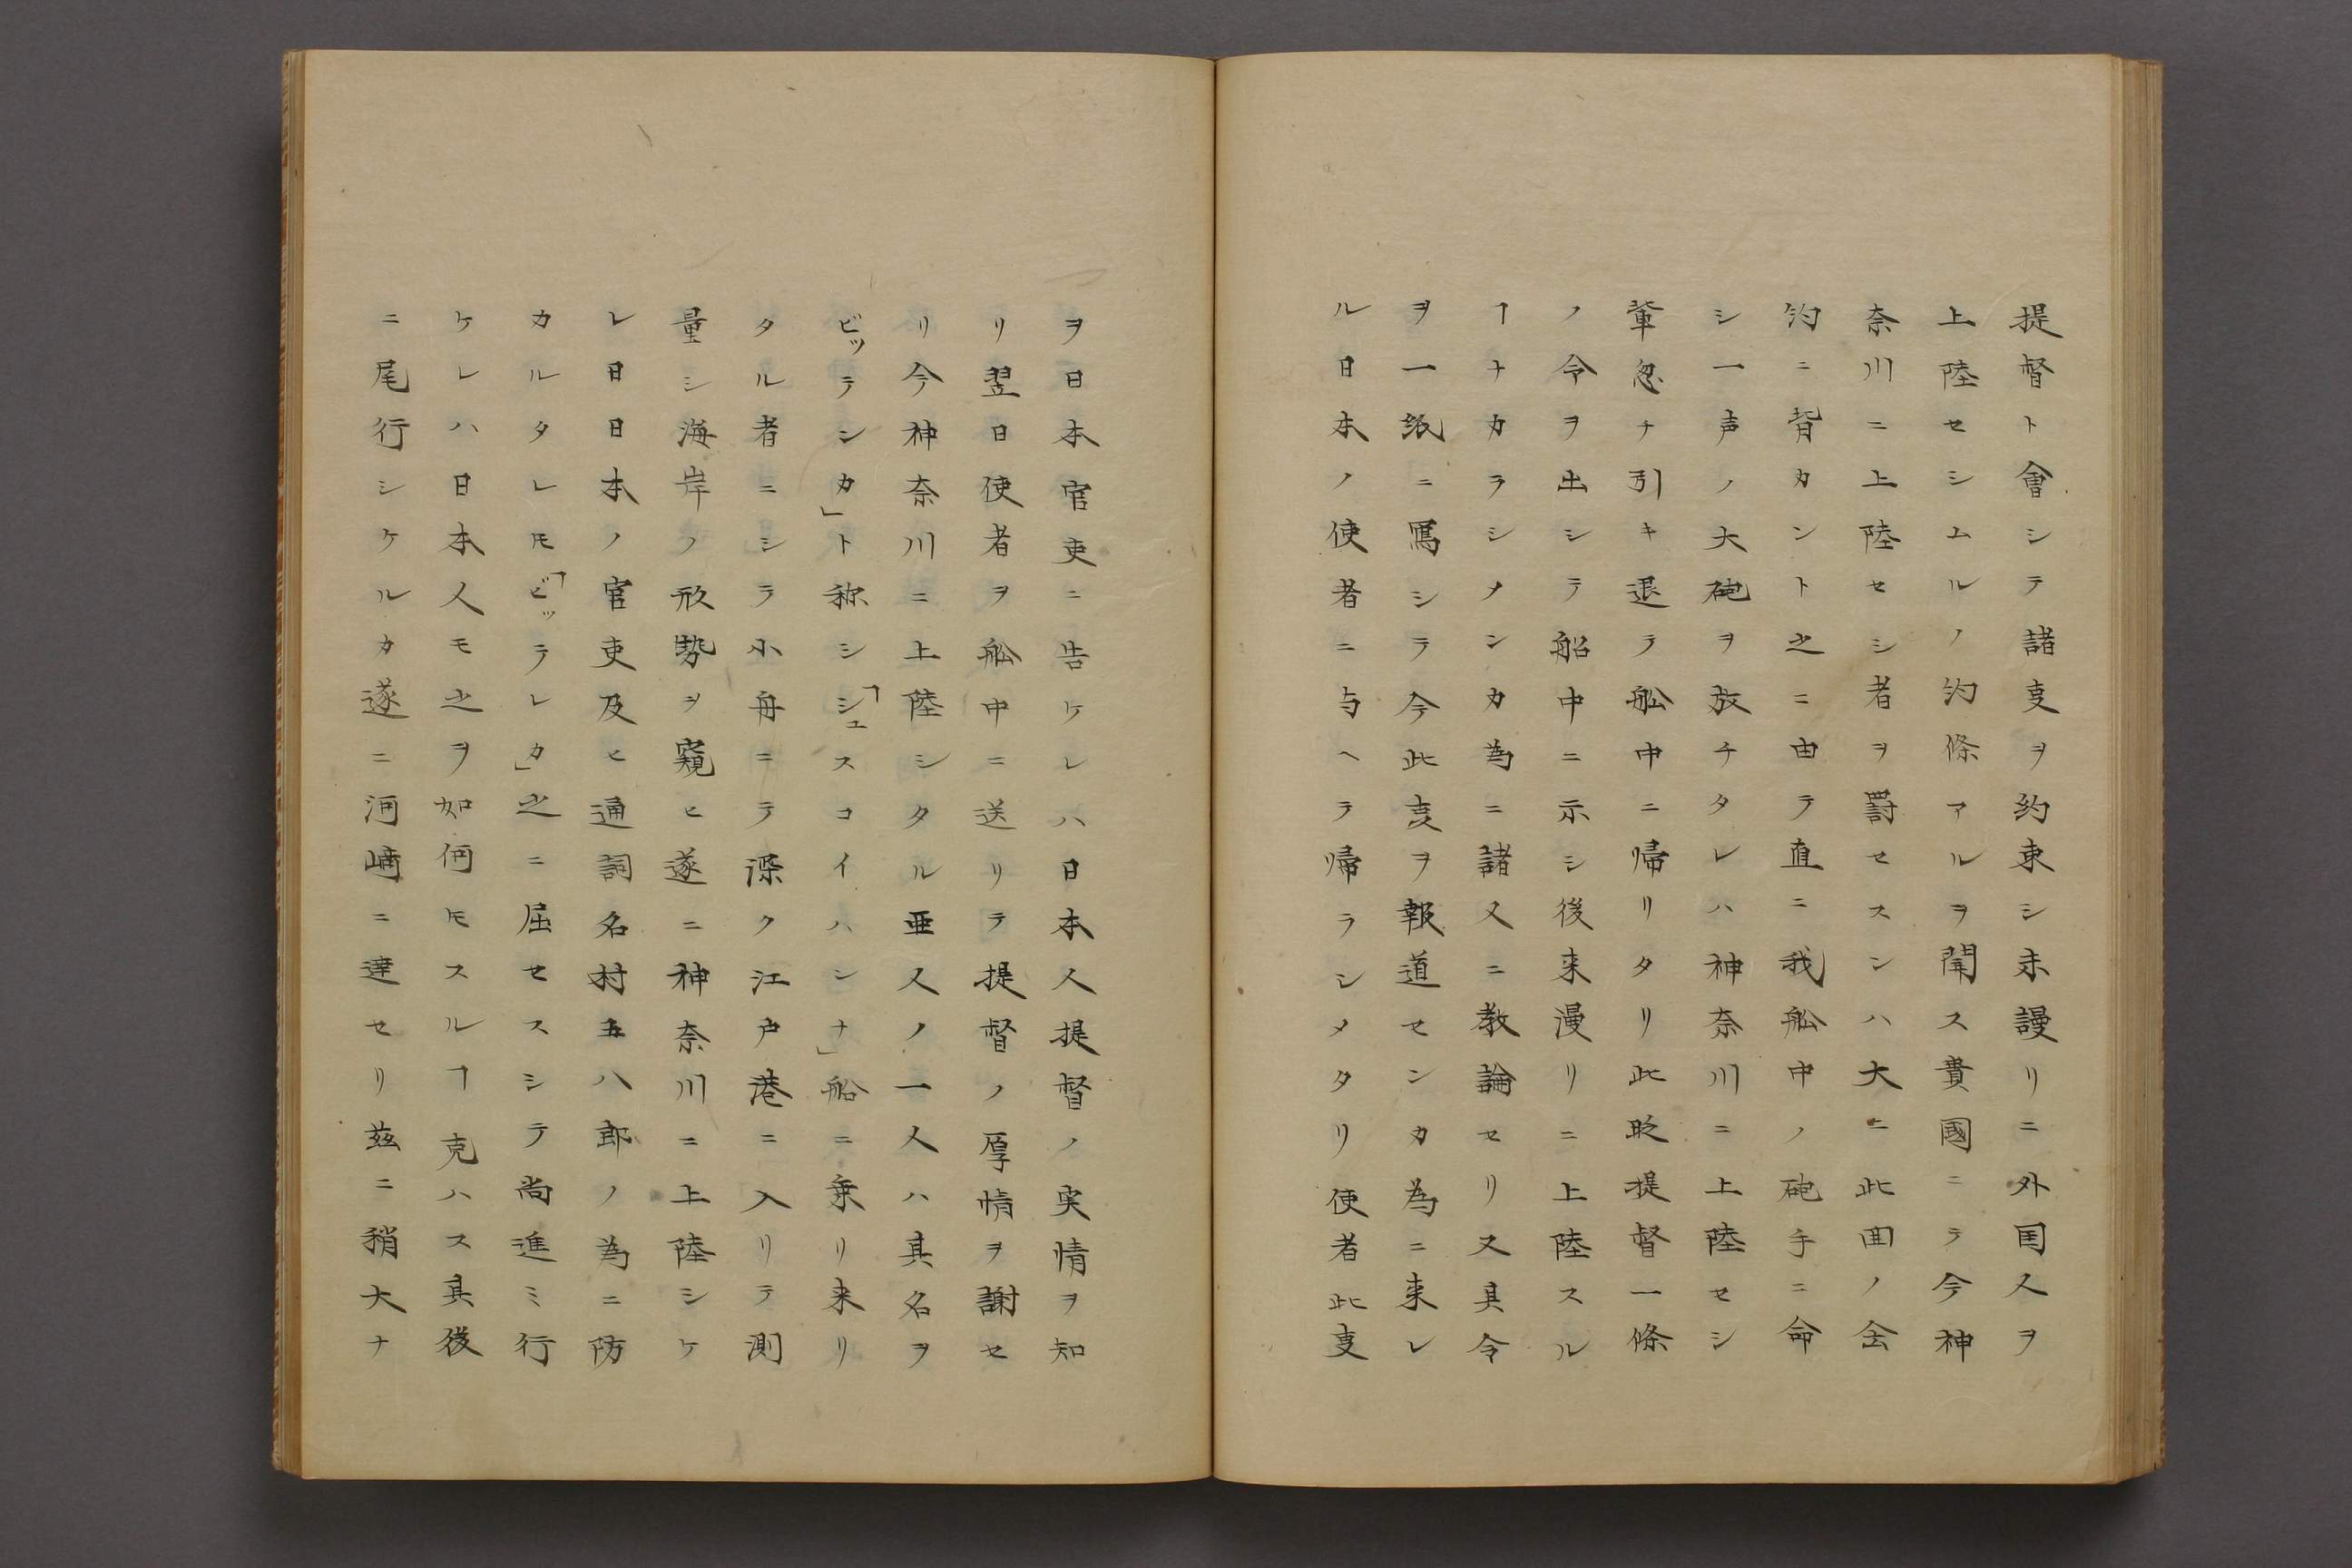 提督ト會シテ諸叓ヲ約束シ未謾リニ外国人ヲ
上陸セシムルノ約條アルヲ聞ス貴國ニテ今神
奈川ニ上陸セシ者ヲ罸セスンハ大ニ此囬ノ会
約ニ背カント之ニ由テ直ニ我舩中ノ砲手ニ命
シ一声ノ大砲ヲ放チタレハ神奈川ニ上陸セシ
輩忽チ引キ退テ舩中ニ帰リタリ此時提督一條
ノ令ヲ出シテ船中ニ示シ後来漫リニ上陸スル
ヿナカラシメンカ為ニ諸人ニ教諭セリ又其令
ヲ一紙ニ寫シテ今此叓ヲ報道センカ為ニ来レ
ル日本ノ使者ニ与ヘテ帰ラシメタリ使者此叓
ヲ日本官吏ニ告ケレハ日本人提督ノ実情ヲ知
リ翌日使者ヲ舩中ニ送リテ提督ノ厚情ヲ謝セ
リ今神奈川ニ上陸シタル亜人ノ一人ハ其名ヲ
ビッテンカ」ト称シ「シュスコイハンナ」船ニ乗リ来リ
タル者ニシテ小舟ニテ深ク江戸港ニ入リテ測
量シ海岸ノ形勢ヲ窺ヒ遂ニ神奈川ニ上陸シケ
レ日日本ノ官吏及ヒ通詞名村五八郎ノ為ニ防
カルタレ𪜈「ビッテレカ」之ニ屈セスシテ尚進ミ行
ケレハ日本人モ之ヲ如何𪜈スルヿ克ハス其後
ニ尾行シケルカ遂ニ河崎ニ達セリ茲ニ稍大ナ